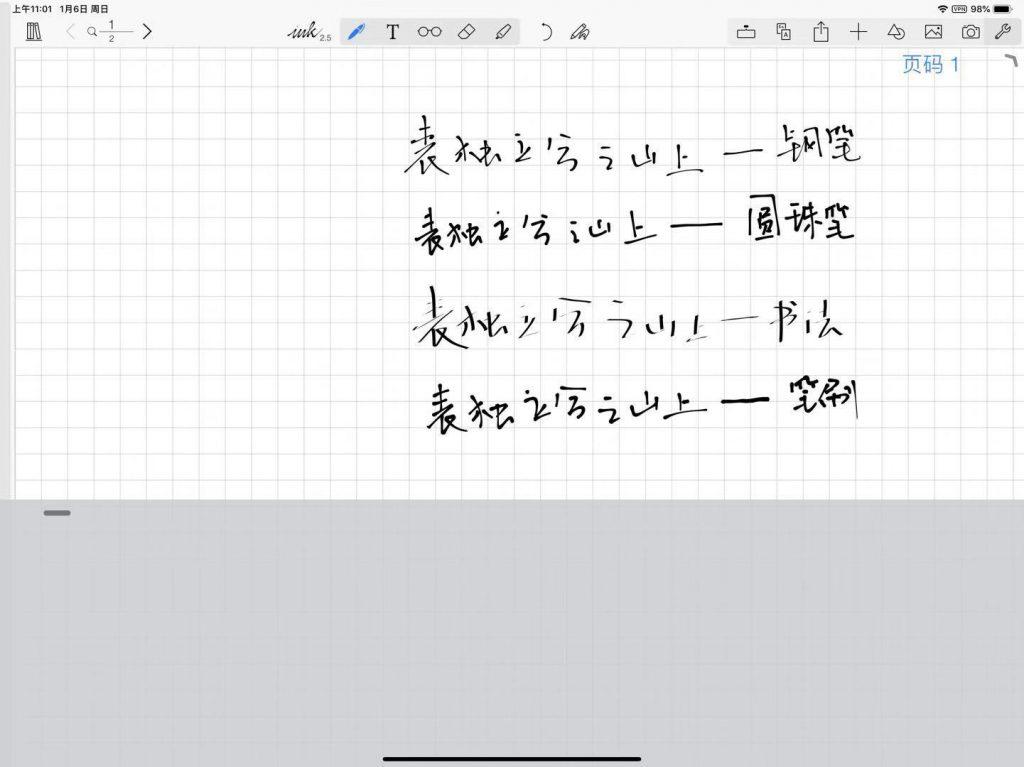 上午11:01 1月6日 周日 VPN 98%
1
2
ink 2.5 T
页码 1
表独立兮之山上一钢笔
表独立兮之山上一圆珠笔
表独立兮之山上一书法
表独立兮之山上一笔刷